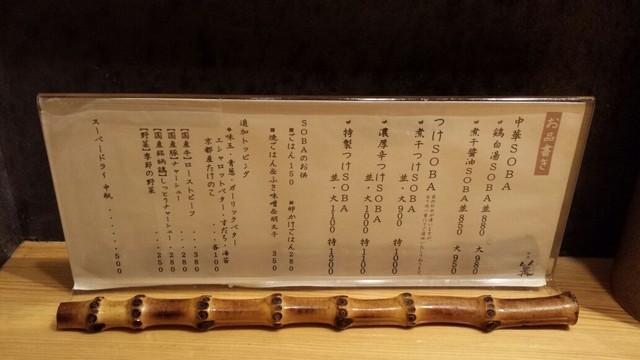 お品書き
中華SOBA
鶏白湯SOBA 並880 大980
煮干醤油SOBA 並850 大950
つけSOBA
煮干つけSOBA
並・大900 特1000
濃厚辛つけSOBA
並・大1000 特1100
特製つけSOBA
並・大1100 特1200
SOBAのお供
■ごはん150 ■卵かけごはん280
■焼ごはん&ふき味噌&明太子 350
追加トッピング
味玉・青葱・ガーリックバター
エシャロットバター・すだち・海苔
京都産たけのこ ・・・各100
【国産牛】ローストビーフ ・・・380
【国産豚】チャーシュー ・・・280
【国産銘柄鶏】しっとりチャーシュー・・250
【野菜】季節の野菜 ・・・250
スーパードライ 中瓶 ・・・・・・500